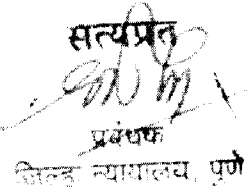 सत्यप्रत
प्रबंधक
जिल्हा न्यायालय, पुणे